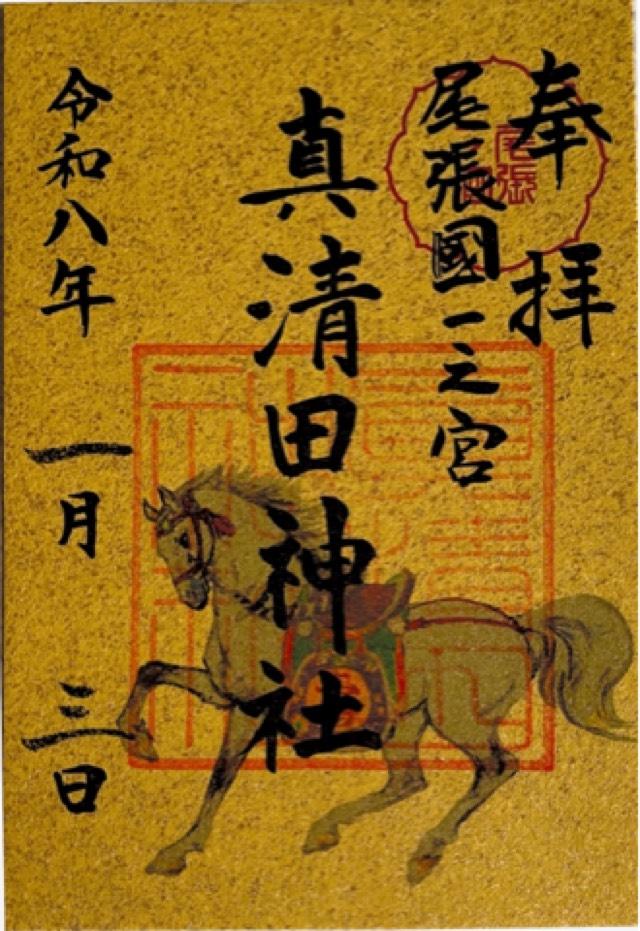 奉拝
尾張國一之宮
真清田神社
令和八年 一月 三日